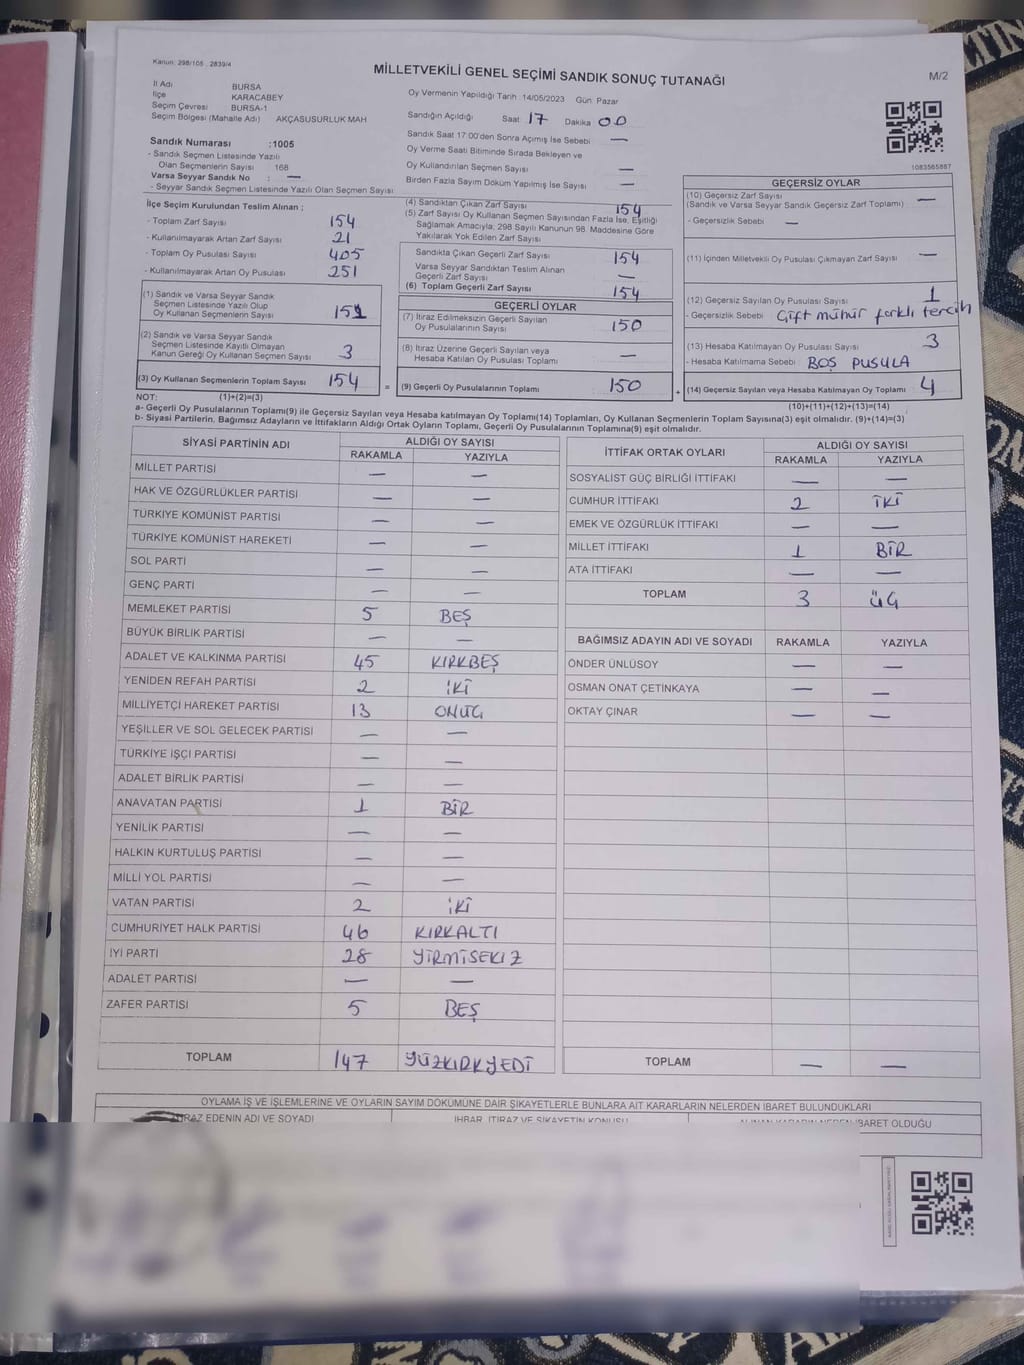 Kanun: 298/105 , 2839/4
MİLLETVEKİLİ GENEL SEÇİMİ SANDIK SONUÇ TUTANAĞI
M/2
İl Adı BURSA
İlçe KARACABEY
Seçim Çevresi BURSA-1
Seçim Bölgesi (Mahalle Adı) AKÇASUSURLUK MAH
Oy Vermenin Yapıldığı Tarih : 14/05/2023 Gün: Pazar
Sandığın Açıldığı Saat 17 Dakika 00
Sandık Saat 17:00'den Sonra Açımış İse Sebebi : —
Oy Verme Saati Bitiminde Sırada Bekleyen ve
Oy Kullandırılan Seçmen Sayısı —
Birden Fazla Sayım Döküm Yapılmış İse Sayısı —
1083565887
Sandık Numarası :1005
- Sandık Seçmen Listesinde Yazılı
Olan Seçmenlerin Sayısı 168
Varsa Seyyar Sandık No : —
- Seyyar Sandık Seçmen Listesinde Yazılı Olan Seçmen Sayısı
İlçe Seçim Kurulundan Teslim Alınan ;
- Toplam Zarf Sayısı 154
- Kullanılmayarak Artan Zarf Sayısı 21
- Toplam Oy Pusulası Sayısı 405
- Kullanılmayarak Artan Oy Pusulası 251
(1) Sandık ve Varsa Seyyar Sandık
Seçmen Listesinde Yazılı Olup
Oy Kullanan Seçmenlerin Sayısı 151
(2) Sandık ve Varsa Seyyar Sandık
Seçmen Listesinde Kayıtlı Olmayan
Kanun Gereği Oy Kullanan Seçmen Sayısı 3
(3) Oy Kullanan Seçmenlerin Toplam Sayısı 154
(4) Sandıktan Çıkan Zarf Sayısı 154
(5) Zarf Sayısı Oy Kullanan Seçmen Sayısından Fazla İse, Eşitliği
Sağlamak Amacıyla, 298 Sayılı Kanunun 98. Maddesine Göre
Yakılarak Yok Edilen Zarf Sayısı
Sandıkta Çıkan Geçerli Zarf Sayısı 154
Varsa Seyyar Sandıktan Teslim Alınan
Geçerli Zarf Sayısı —
(6) Toplam Geçerli Zarf Sayısı 154
GEÇERLİ OYLAR
(7) İtiraz Edilmeksizin Geçerli Sayılan
Oy Pusulalarının Sayısı 150
(8) İtiraz Üzerine Geçerli Sayılan veya
Hesaba Katılan Oy Pusulası Toplamı —
= (9) Geçerli Oy Pusulalarının Toplamı 150
GEÇERSİZ OYLAR
(10) Geçersiz Zarf Sayısı
(Sandık ve Varsa Seyyar Sandık Geçersiz Zarf Toplamı) —
- Geçersizlik Sebebi —
(11) İçinden Milletvekili Oy Pusulası Çıkmayan Zarf Sayısı —
(12) Geçersiz Sayılan Oy Pusulası Sayısı 1
- Geçersizlik Sebebi Çift mühür farklı tercih
(13) Hesaba Katılmayan Oy Pusulası Sayısı 3
- Hesaba Katılmama Sebebi BOŞ PUSULA
+ (14) Geçersiz Sayılan veya Hesaba Katılmayan Oy Toplamı 4
NOT: (1)+(2)=(3)
(10)+(11)+(12)+(13)=(14)
a- Geçerli Oy Pusulalarının Toplamı(9) ile Geçersiz Sayılan veya Hesaba katılmayan Oy Toplamı(14) Toplamları, Oy Kullanan Seçmenlerin Toplam Sayısına(3) eşit olmalıdır. (9)+(14)=(3)
b- Siyasi Partilerin, Bağımsız Adayların ve İttifakların Aldığı Ortak Oyların Toplamı, Geçerli Oy Pusulalarının Toplamına(9) eşit olmalıdır.
SİYASİ PARTİNİN ADI ALDIĞI OY SAYISI
RAKAMLA YAZIYLA
MİLLET PARTİSİ — —
HAK VE ÖZGÜRLÜKLER PARTİSİ — —
TÜRKİYE KOMÜNİST PARTİSİ — —
TÜRKİYE KOMÜNİST HAREKETİ — —
SOL PARTİ — —
GENÇ PARTİ — —
MEMLEKET PARTİSİ 5 BEŞ
BÜYÜK BİRLİK PARTİSİ — —
ADALET VE KALKINMA PARTİSİ 45 KIRKBEŞ
YENİDEN REFAH PARTİSİ 2 İKİ
MİLLİYETÇİ HAREKET PARTİSİ 13 ONÜÇ
YEŞİLLER VE SOL GELECEK PARTİSİ — —
TÜRKİYE İŞÇİ PARTİSİ — —
ADALET BİRLİK PARTİSİ — —
ANAVATAN PARTİSİ 1 BİR
YENİLİK PARTİSİ — —
HALKIN KURTULUŞ PARTİSİ — —
MİLLİ YOL PARTİSİ — —
VATAN PARTİSİ 2 İKİ
CUMHURİYET HALK PARTİSİ 46 KIRKALTI
İYİ PARTİ 28 YİRMİSEKIZ
ADALET PARTİSİ — —
ZAFER PARTİSİ 5 BEŞ
TOPLAM 147 YÜZKIRKYEDİ
İTTİFAK ORTAK OYLARI ALDIĞI OY SAYISI
RAKAMLA YAZIYLA
SOSYALİST GÜÇ BİRLİĞİ İTTİFAKI — —
CUMHUR İTTİFAKI 2 İKİ
EMEK VE ÖZGÜRLÜK İTTİFAKI — —
MİLLET İTTİFAKI 1 BİR
ATA İTTİFAKI — —
TOPLAM 3 ÜÇ
BAĞIMSIZ ADAYIN ADI VE SOYADI RAKAMLA YAZIYLA
ÖNDER ÜNLÜSOY — —
OSMAN ONAT ÇETİNKAYA — —
OKTAY ÇINAR — —
TOPLAM — —
OYLAMA İŞ VE İŞLEMLERİNE VE OYLARIN SAYIM DÖKÜMÜNE DAİR ŞİKAYETLERLE BUNLARA AİT KARARLARIN NELERDEN İBARET BULUNDUKLARI
EDENİN ADI VE SOYADI İHBAR, İTİRAZ VE ŞİKAYETİN KONUSU İBARET OLDUĞU